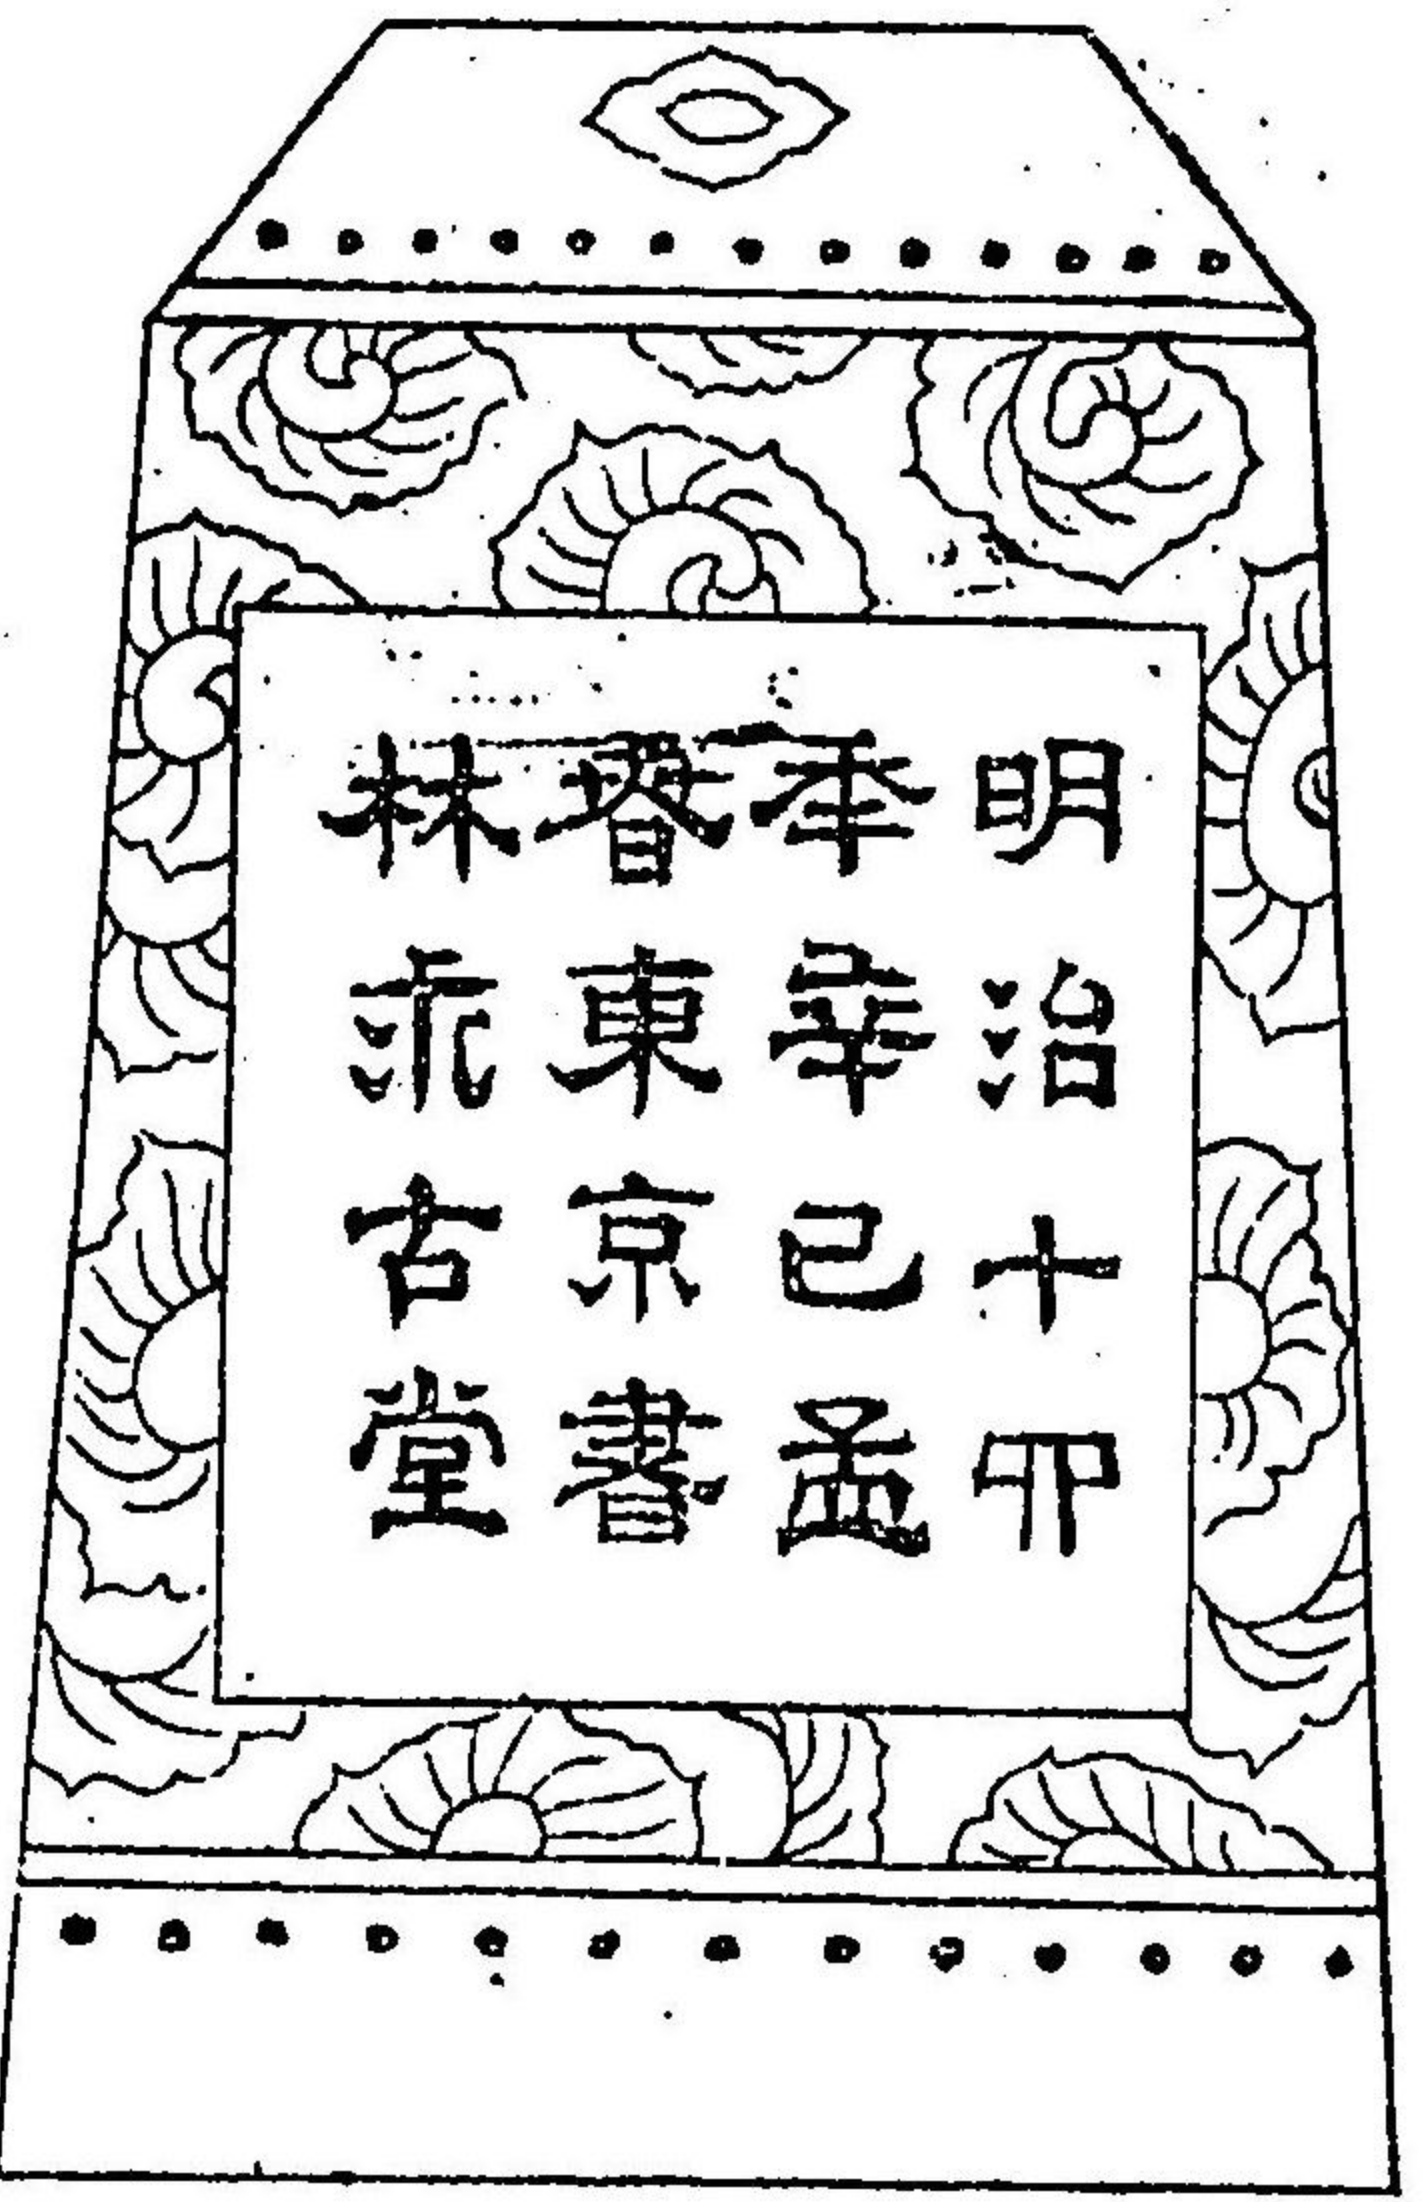 明治十四
年辛巳孟
春東京書
林求古堂